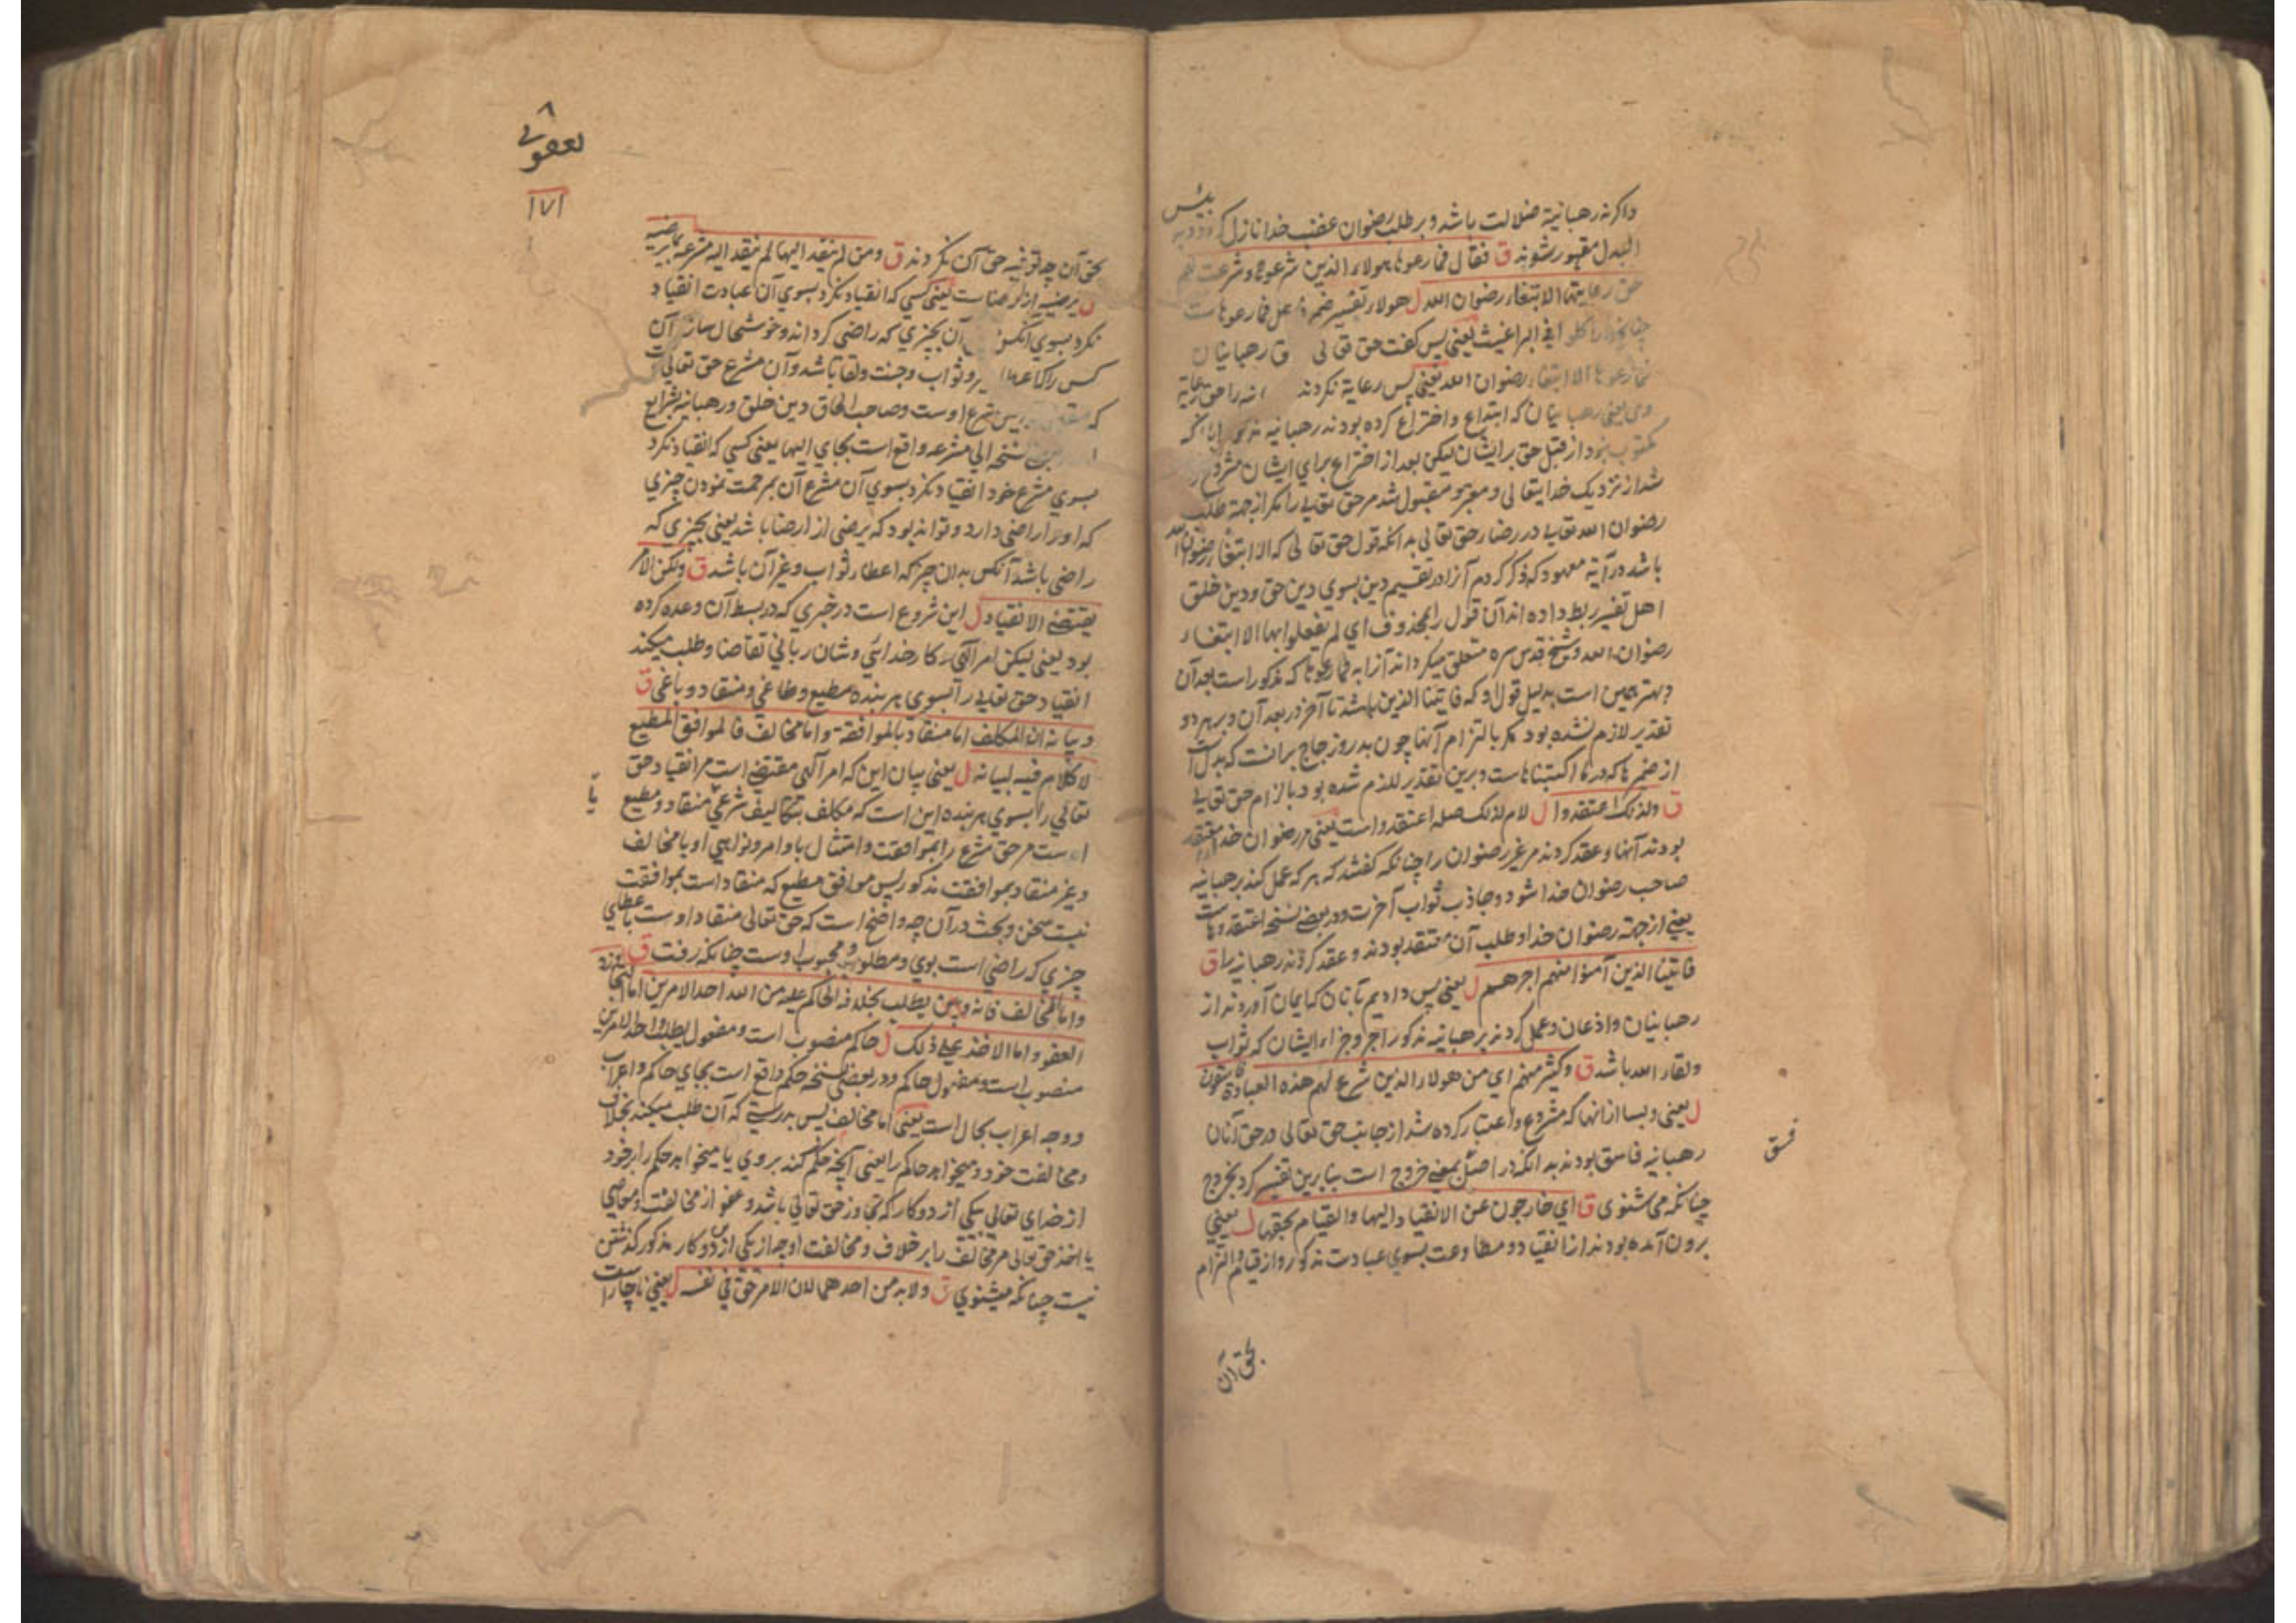 واکر نه رهبانیة ضلالت باشد و بر طلب رضوان غضب خدا نازل
البدل مقهور شوند ق فقال فما رعوها هولاء الذین شرعوها و شرعت لهم
حق رعایتها الا ابتغاء رضوان الله ل هولاء تفسیر ضمیر فاعل فما رعوها ست
البراغیث یعنی پس کفت حق تعالی رهبانیان
فما رعوها الا ابتغاء رضوان الله یعنی پس رعایة نکردند حق رعایة
وی یعنی رهبانیان که ابتداع و اختراع کرده بودند رهبانیه
مکتوب نبود از قبل حق بر ایشان لیکن بعد از اختراع برای ایشان مشروع
شد از نزدیک خدایتعالی و معتبر و مقبول شد مر حق تعالی را مکر از جهة طلب
رضوان الله تعالی در رضاء حق تعالی بدانکه قول حق تعالی که الا ابتغاء رضوان الله
باشد در آیة معهود که ذکر کردم آنرا در تقسیم دین بسوی دین حق و دین خلق
اهل تفسیر ربط داده اند آن قول را بمحذوف ای لم یفعلوا بها الا ابتغاء
رضوان الله و شیخ قدس سره متعلق میکرداند آنرا به فما رعوها که مذکور است بعد آن
و بهتر همین است بدلیل قول او که فاتینا الذین باشد تا آخر در بعد آن و بر هر دو
تقدیر لازم نشده بود مکر بالتزام آنها چون بدر و زجاج بر انست که بدل است
از ضمیر ها که در ما اکتبناها ست و برین تقدیر لازم شده بود بالزام حق تعالی
ق ولذلک اعتقدوا ل لام لذلک صله اعتقدوا است یعنی مر رضوان خدا را معتقد
بودند آنها و عقد کردند مر غیر رضوان را چنانکه کفتند که هر که عمل کند بر رهبانیه
صاحب رضوان خدا شود و جاذب ثواب آخرت و در بعضی نسخه اعتقدوها ست
یعنی از جهة رضوان خدا و طلب آن معتقد بودند و عقد کردند رهبانیه را ق
فاتینا الذین آمنوا منهم اجرهم ل یعنی پس دادیم بآنان که ایمان آوردند از
رهبانیان و اذعان و عمل کردند بر رهبانیه مذکور اجر و جزاء ایشان که ثواب
و لقاء الله باشد ق وکثیر منهم ای من هولاء الذین شرع لهم هذه العبادة فاسقون
ل یعنی و بسا از آنها که مشروع و اعتبار کرده شد از جانب حق تعالی در حق آنان
رهبانیه فاسق بودند بدانکه در اصل بمعنی خروج است بنابرین تفسیر کرد بخروج
فسق
چنانکه می شنوی ق ای خارجون عن الانقیاد الیها والقیام بحقها ل یعنی
برون آمده بودند از انقیاد و مطاوعت بسوی عبادت مذکور و از قیام و التزام
بحق آن
۱۷۱
بحق آن چه توفیه حق آن نکردند ق ومن لم ینقد الیها لم ینقد الیه مشرعه بما یرضیه
ل یرضیه از ارضا ست یعنی کسی که انقیاد نکرد بسوی آن عبادت انقیاد
نکرد بسوی آنکس آن بچیزی که راضی کرداند و خوشحال سازد آن
کس را ثواب و جنت و لقا باشد و آن مشرع حق تعالی است
که شرع اوست و صاحب الحاق دین خلق و رهبانیه بشرایع
نسخه الی مشرعه واقع است بجای الیها یعنی کسی که انقیاد نکرد
بسوی مشرع خود انقیاد نکرد بسوی آن مشرع آن بمرحمت نمودن چیزی
که او را راضی دارد و تواند بود که یرضی از ارضا باشد یعنی بچیزی که
راضی باشد آنکس بدان چیز که اعطاء ثواب و غیر آن باشد ق ولکن الامر
یقتضی الانقیاد ل این شروع است در خبری که در بسط آن وعده کرده
بود یعنی لیکن امر الهی و کار خدائی و شان ربانی تقاضا و طلب میکند
انقیاد حق تعالی را بسوی هر بنده مطیع و طاغی و منقاد و باغی ق
وبیانه ان المکلف اما منقاد بالموافقة واما مخالف فالموافق المطیع
لا کلام فیه لبیانه ل یعنی بیان این که امر الهی مقتضی است مر انقیاد حق
تعالی را بسوی هر بنده این است که مکلف بتکالیف شرعی منقاد و مطیع
یا
اوست مر حق مشرع را بموافقت و امتثال باوامر و نواهی او یا مخالف
و غیر منقاد بموافقت مذکور پس موافق مطیع که منقاد است بموافقت
نیست سخن و بحث در آن چه واضح است که حق تعالی منقاد اوست باعطای
چیزی که راضی است بوی و مطلوب و محبوب اوست چنانکه رفت ق
واما المخالف فانه یطلب بخلافه الحاکم علیه من الله احد الامرین اما التجاوز
العفو واما الاخذ علی ذلک ل حاکم منصوب است و مفعول یطلب و احد الامرین
منصوب است و مفعول حاکم و در بعضی نسخه حکم واقع است بجای حاکم و اعراب
و وجه اعراب بحال است یعنی اما مخالف پس بدرستی که آن طلب میکند بخلاف
و مخالفت خود و میخواهد حاکم را یعنی آنچه حکم کند بر وی یا میخواهد حکم را بر خود
از خدای تعالی یکی از دو کار که تجاوز حق تعالی باشد و عفو از مخالفت و معاصی
یا اخذ حق تعالی مر مخالف را بر خلاف و مخالفت او چه از یکی از دو کار مذکور کذشتن
نیست چنانکه میشنوی ق ولا بد من احدهما لان الامر حق فی نفسه ل یعنی ناچار است